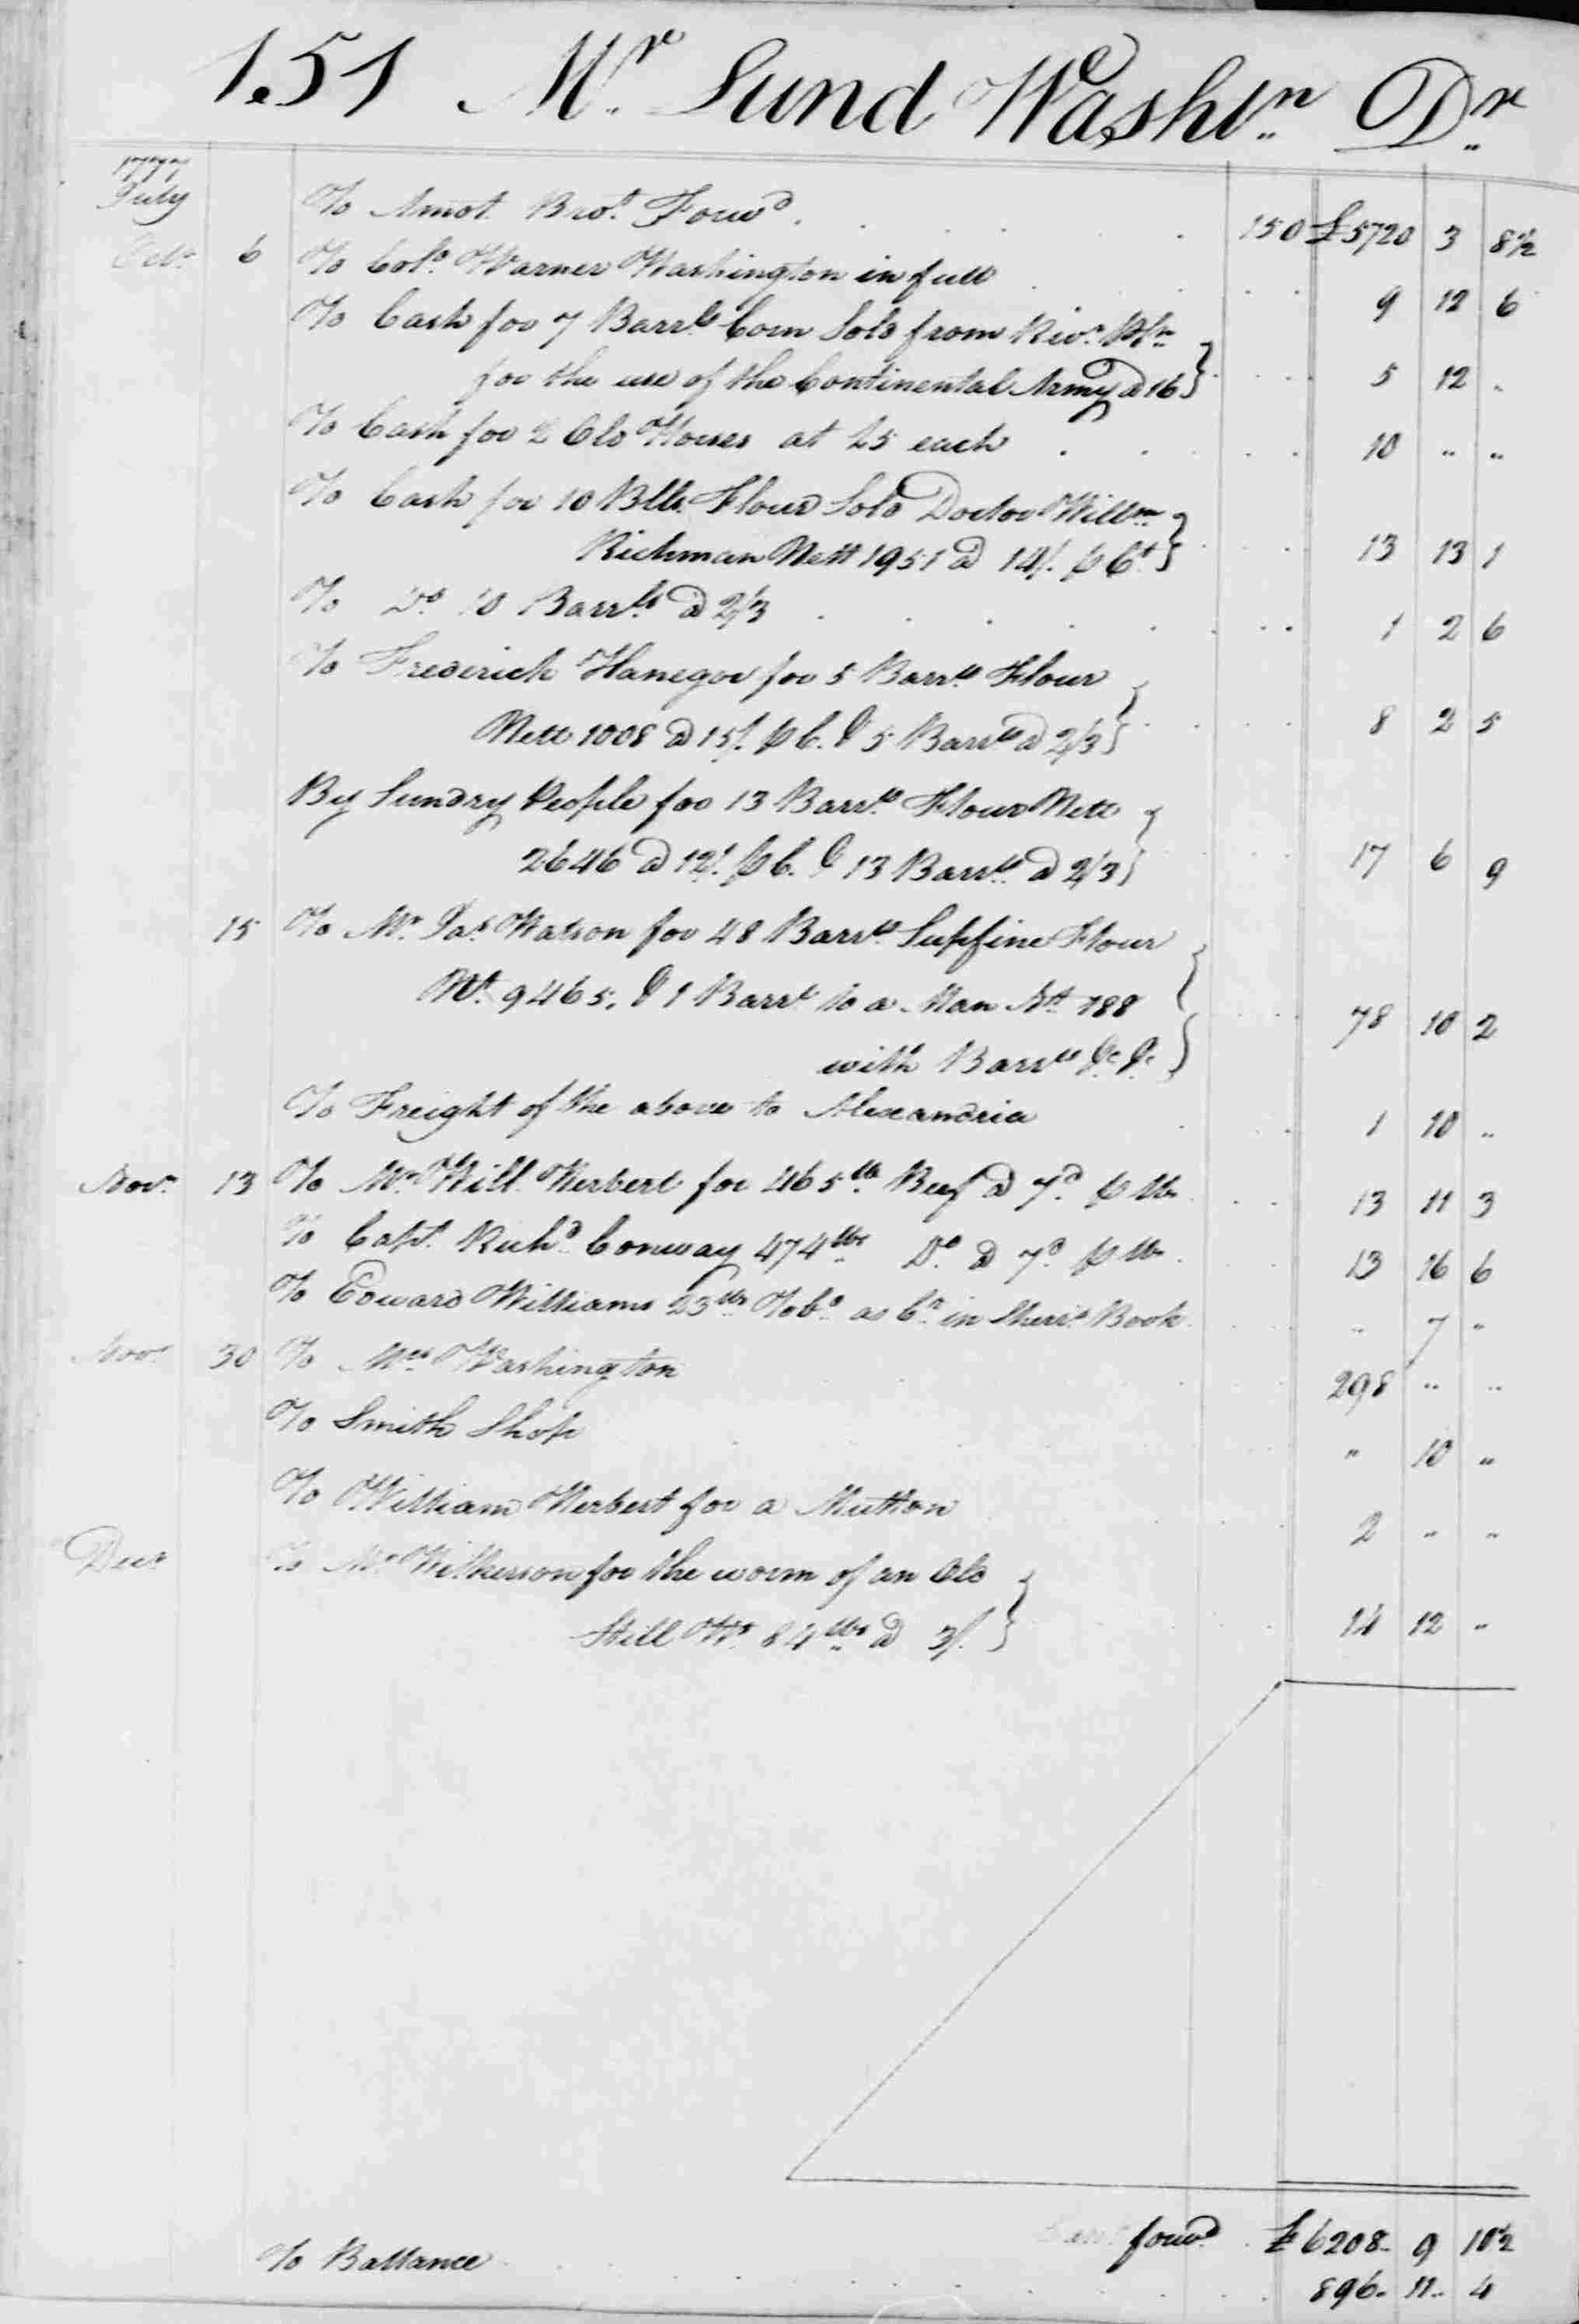 151 Mr. Lund Washtn. Dr.
1777
July To Amot. Brot. Forwd. 150 £5720 3 8½
Octr. 6 To Colo. Warner Washington in full 9 12 6
To Cash for 7 Barrls Corn Sold from Rivr. Pln.
for the use of the Continental Army @ 16 5 12 "
To Cash for 2 Old Horses at £5 each 10 " "
To Cash for 10 Blls. Flour Sold Doctor Willm.
Rickman Nett 1951 @ 14/. p Ct. 13 13 1
To Do. 10 Barrls @ 2/3 1 2 6
To Frederick Hanegor for 5 Barrls. Flour
Nett 1008 @ 15/. p C. & 5 Barrls @ 2/3 8 2 5
By Sundry People for 13 Barrls. Flour Nett
2646 @ 12/. p C. & 13 Barrls. @ 2/3 17 6 9
15 To Mr. Jas. Watson for 48 Barrls. Supfine Flour
Wt. 9465, & 1 Barrl. to a Man Nt. 188
with Barrls &c. &c. 78 10 2
To Freight of the above to Alexandria 1 10 "
Novr. 13 To Mr. Will. Herbert for 465 lb Beef @ 7d. p lb. 13 11 3
To Capt. Richd. Conway 474 lbs Do. @ 7d. p lb. 13 16 6
To Edward Williams 23 lbs Tobo. as Cr. in Sherrs. Book " 7 "
Novr. 30 To Mrs. Washington 298 " "
To Smith Shop " 10 "
To William Herbert for a Mutton 2 " "
Decr. To Mr. Wilkerson for the worm of an Old
Still Wt. 84 lbs @ 3/. 14 12 "
Carrd. forwd. £6208. 9 10½
To Ballance 896. 11. 4